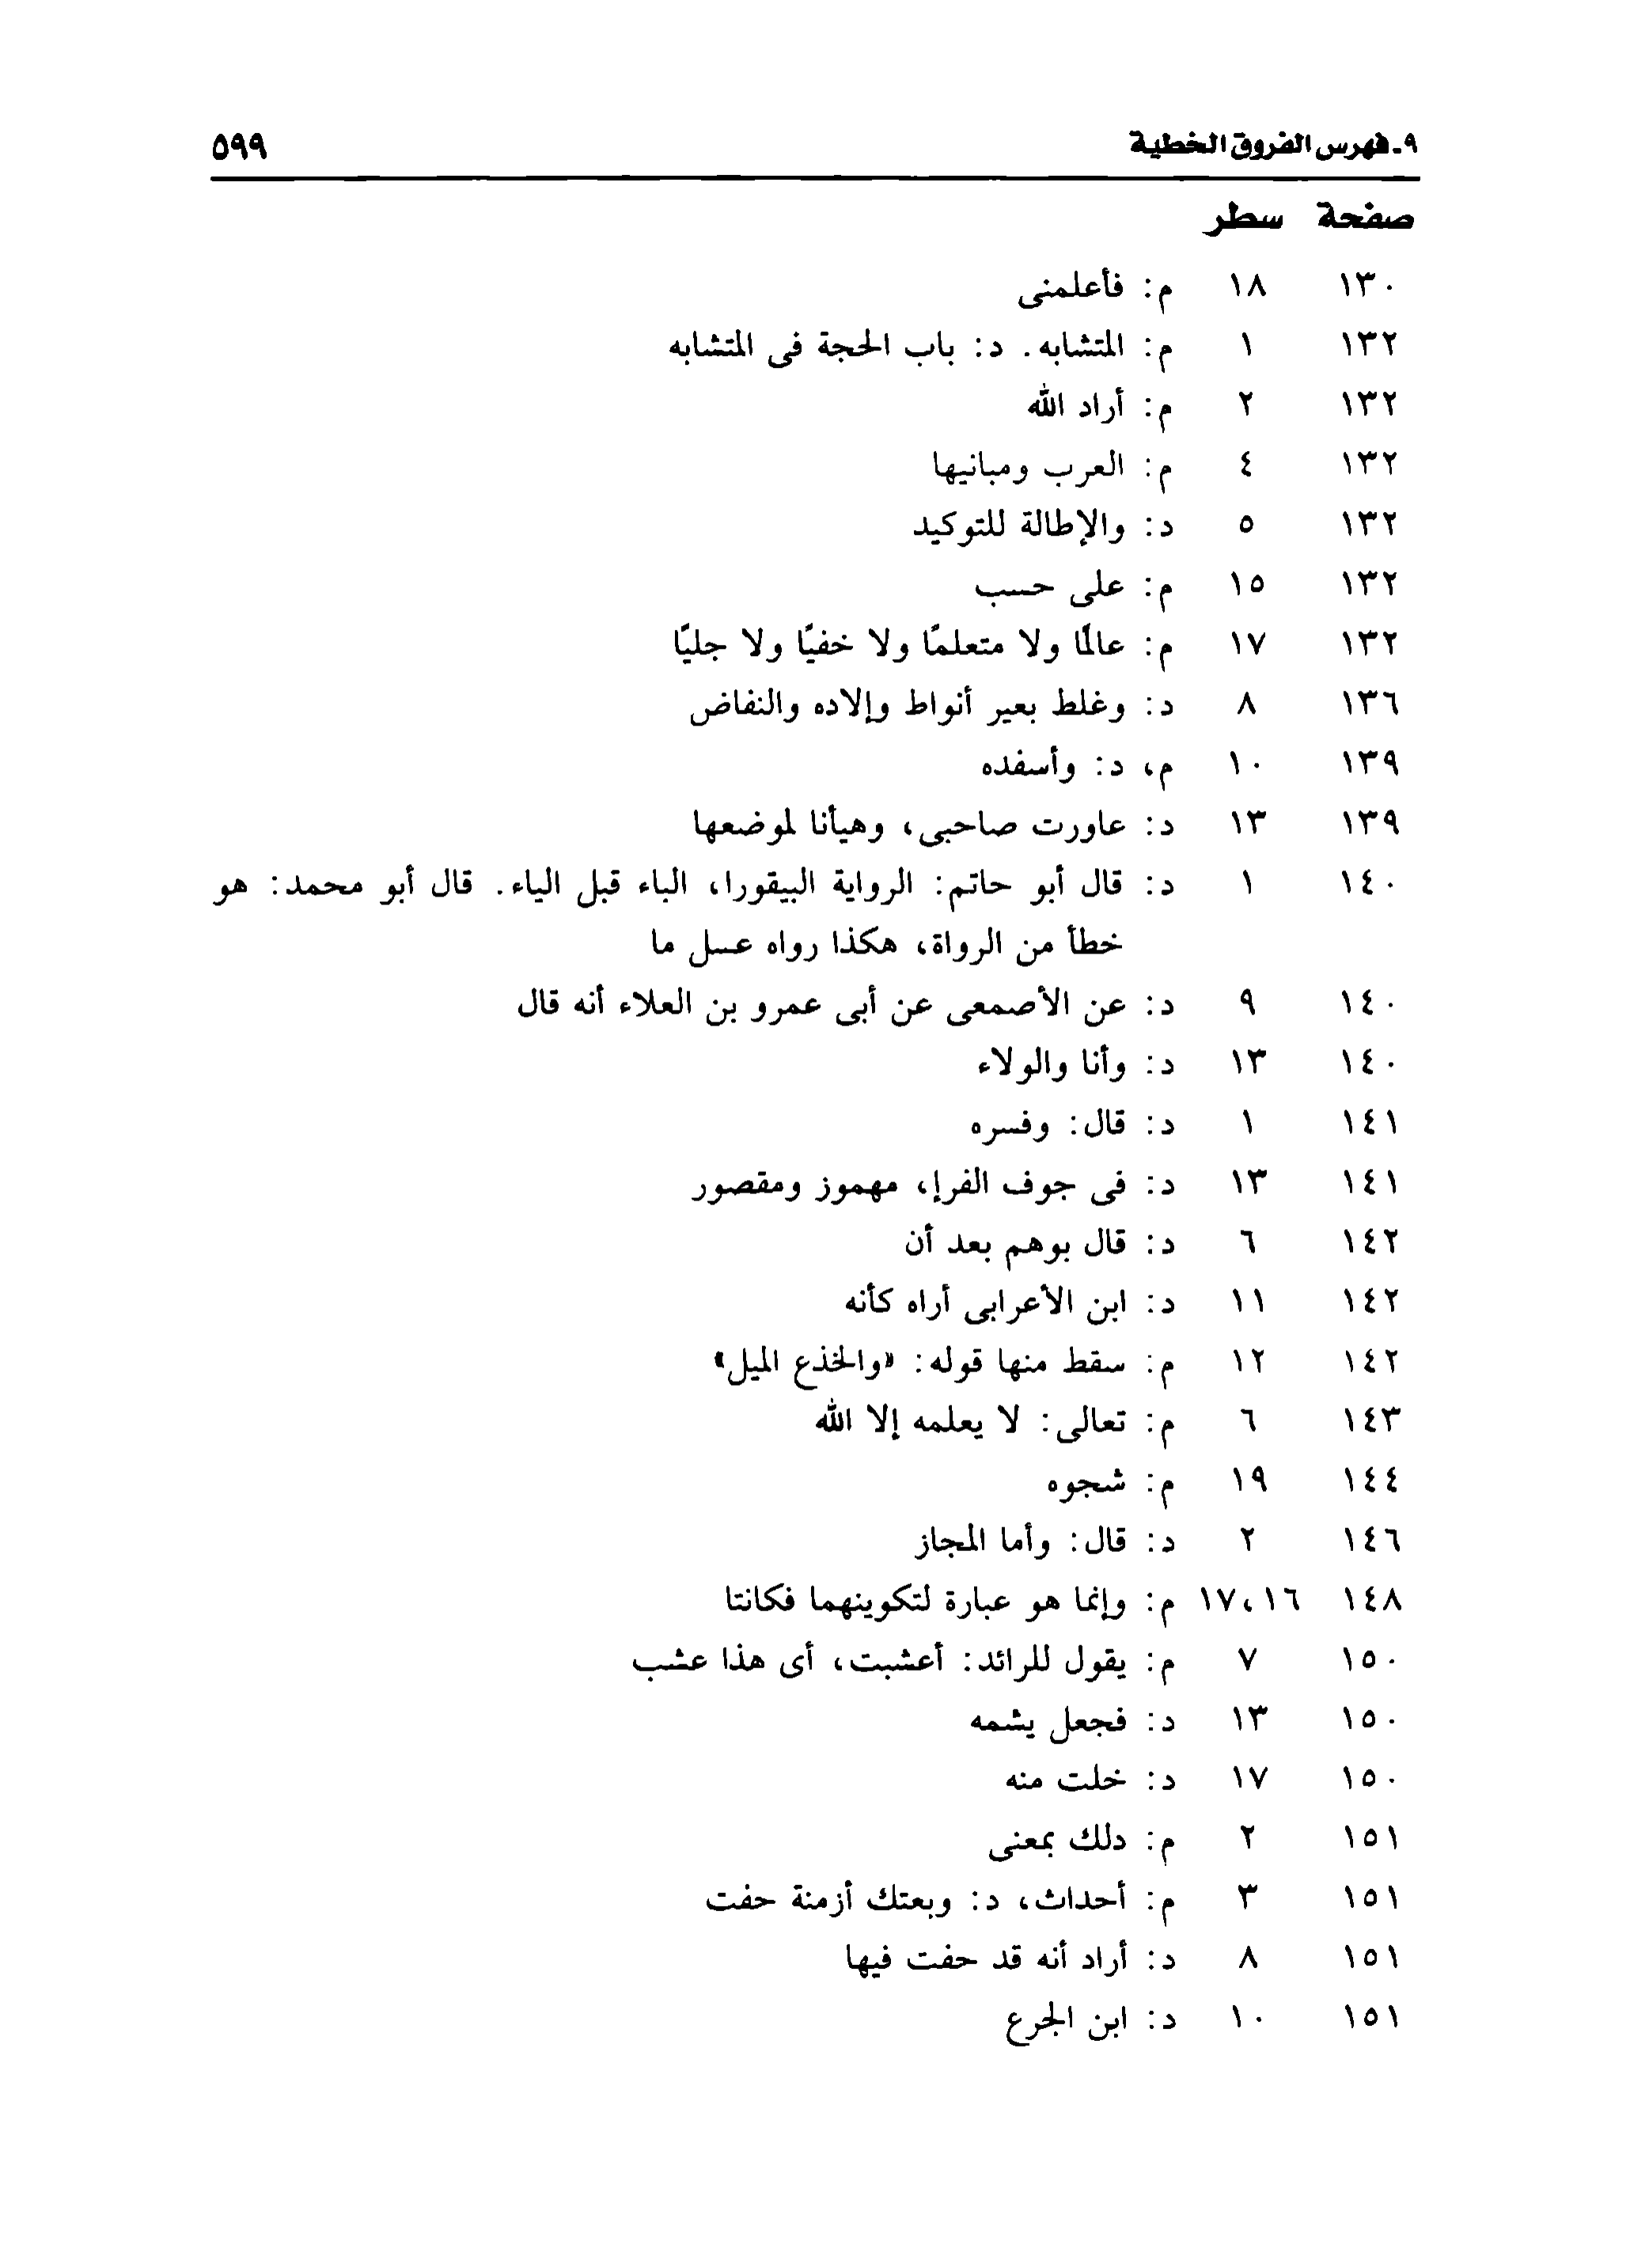 ٩ـ فهرس الفروق الخطية ٥٩٩
صفحة سطر
١٣٠ ١٨ م: فأعلمنى
١٣٢ ١ م: المتشابه. د: باب الحجة فى المتشابه
١٣٢ ٢ م: أراد الله
١٣٢ ٤ م: العرب ومبانيها
١٣٢ ٥ د: والإطالة للتوكيد
١٣٢ ١٥ م: على حسب
١٣٢ ١٧ م: عالمًا ولا متعلمًا ولا خفيًا ولا جليًا
١٣٦ ٨ د: وغلط بعير أنواط وإلاده والنفاض
١٣٩ ١٠ م، د: وأسفده
١٣٩ ١٣ د: عاورت صاحبى، وهيأنا لموضعها
١٤٠ ١ د: قال أبو حاتم: الرواية البيقورا، الباء قبل الياء. قال أبو محمد: هو
خطأ من الرواة، هكذا رواه عسل ما
١٤٠ ٩ د: عن الأصمعى عن أبى عمرو بن العلاء أنه قال
١٤٠ ١٣ د: وأنا والولاء
١٤١ ١ د: قال: وفسره
١٤١ ١٣ د: فى جوف الفرإ، مهموز ومقصور
١٤٢ ٦ د: قال بوهم بعد أن
١٤٢ ١١ د: ابن الأعرابى أراه كأنه
١٤٢ ١٢ م: سقط منها قوله: «والخذع الميل»
١٤٣ ٦ م: تعالى: لا يعلمه إلا الله
١٤٤ ١٩ م: شجوه
١٤٦ ٢ د: قال: وأما المجاز
١٤٨ ١٦، ١٧ م: وإنما هو عبارة لتكوينهما فكانتا
١٥٠ ٧ م: يقول للرائد: أعشبت، أى هذا عشب
١٥٠ ١٣ د: فجعل يشمه
١٥٠ ١٧ د: خلت منه
١٥١ ٢ م: دلك بمعنى
١٥١ ٣ م: أحداث، د: وبعتك أزمنة حفت
١٥١ ٨ د: أراد أنه قد حفت فيها
١٥١ ١٠ د: ابن الجرع